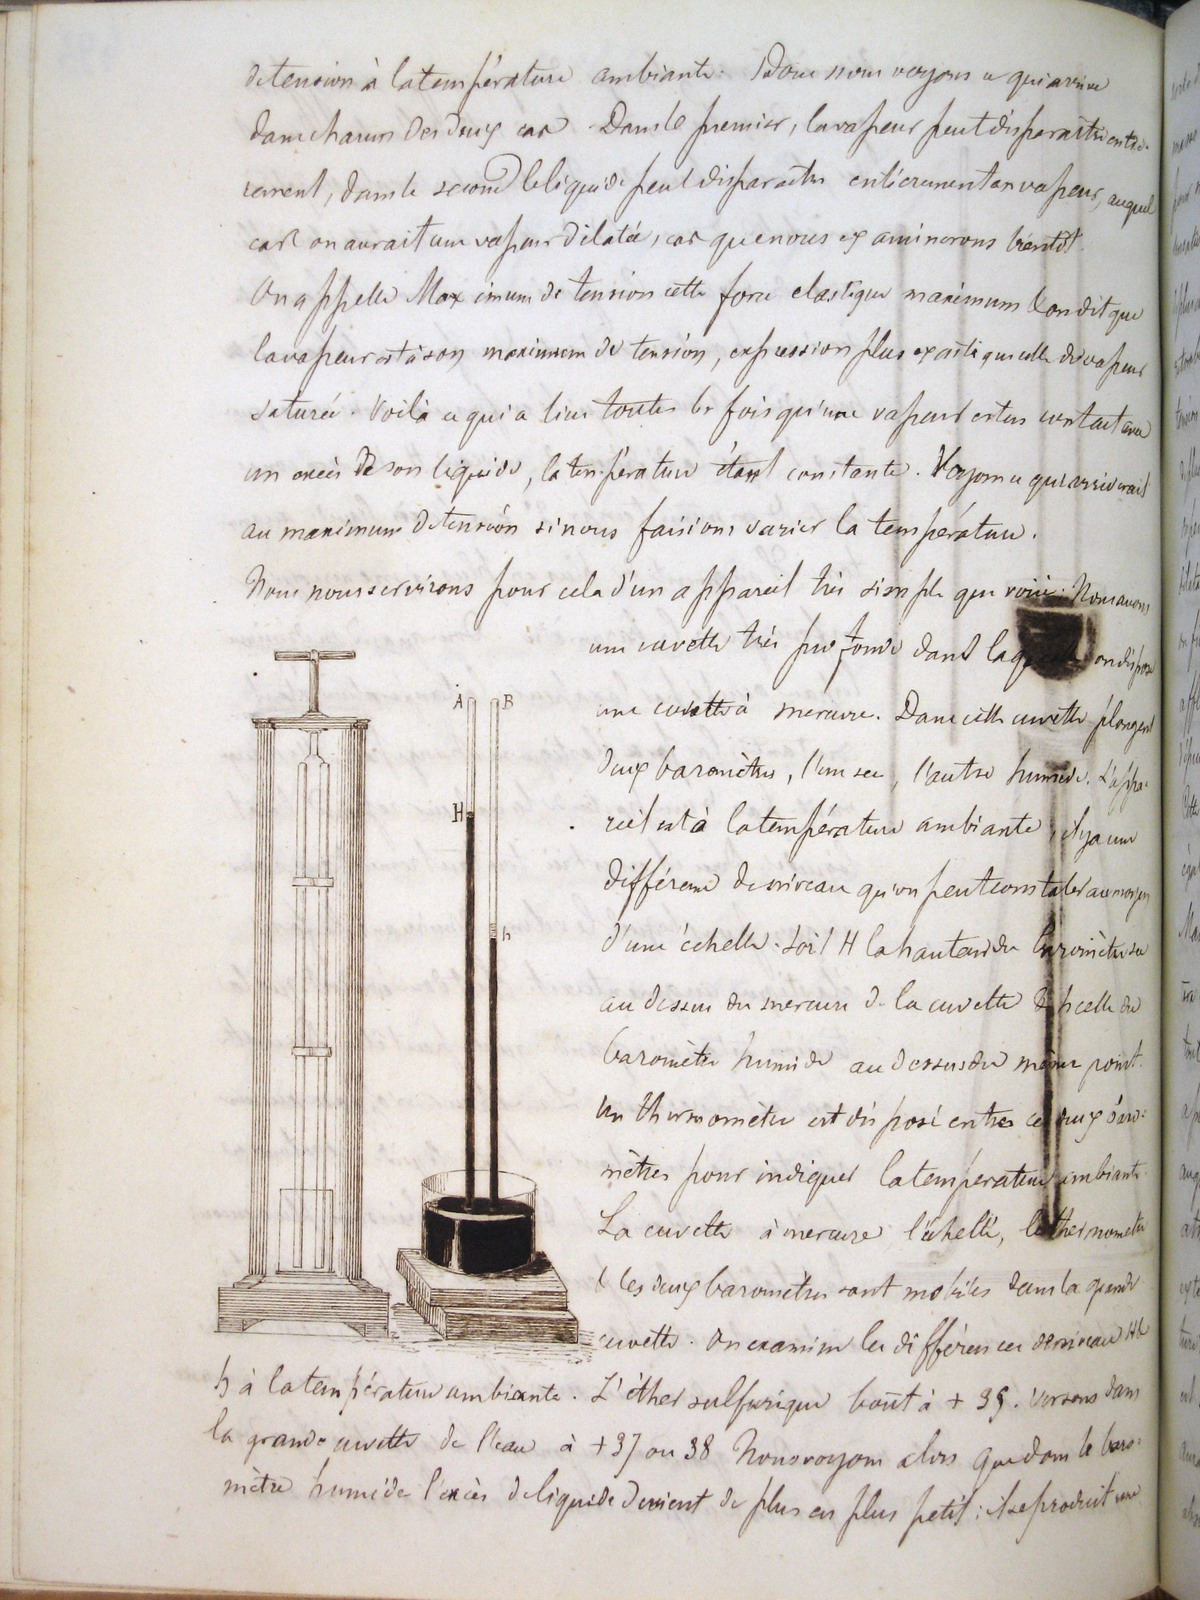 de tension à la température ambiante. Donc nous voyons ce qui arrive
dans chacun des deux cas. Dans le premier, la vapeur peut disparaître entiè-
rement, dans le second le liquide peut disparaitre entièrement en vapeur, auquel
cas on aurait une vapeur dilatée, cas que nous examinerons bientôt.
On appelle Maximum de tension cette force elastique maximum & on dit que
la vapeur est à son maximum de tension, expression plus exacte que celle de vapeur
saturée. Voilà ce qui a lieu toutes les fois qu'une vapeur est en contact avec
un excès de son liquide, la température étant constante. Voyons ce qui arriverait
au maximum de tension si nous faisions varier la température.
Nous nous servirons pour cela d'un appareil très simple que voici. Nous avons
une cuvette très profonde dans laquelle on dispose
A B
une cuvette à mercure. Dans cette cuvette plongent
deux baromètres, l'un sec, l'autre humide. L'appa-
H
reil est à la température ambiante, il y a une
différence de niveau qu'on peut constater au moyen
h
d'une échelle. Soit H la hauteur du baromètre sec
au dessus du mercure de la cuvette & h celle du
baromètre humide au dessus du même point.
Un thermomètre est disposé entre ces deux baro-
mètres pour indiquer la température ambiante.
La cuvette à mercure l'échelle, le thermomètre
& les deux baromètres sont mobiles dans la grande
cuvette. On examine les différences de niveau H &
h à la température ambiante. L'éther sulfurique bout à + 35. Versons dans
la grande cuvette de l'eau à +37 ou 38 Nous voyons alors que dans le baro-
mètre humide l'excès de liquide devient de plus en plus petit: il se produit une